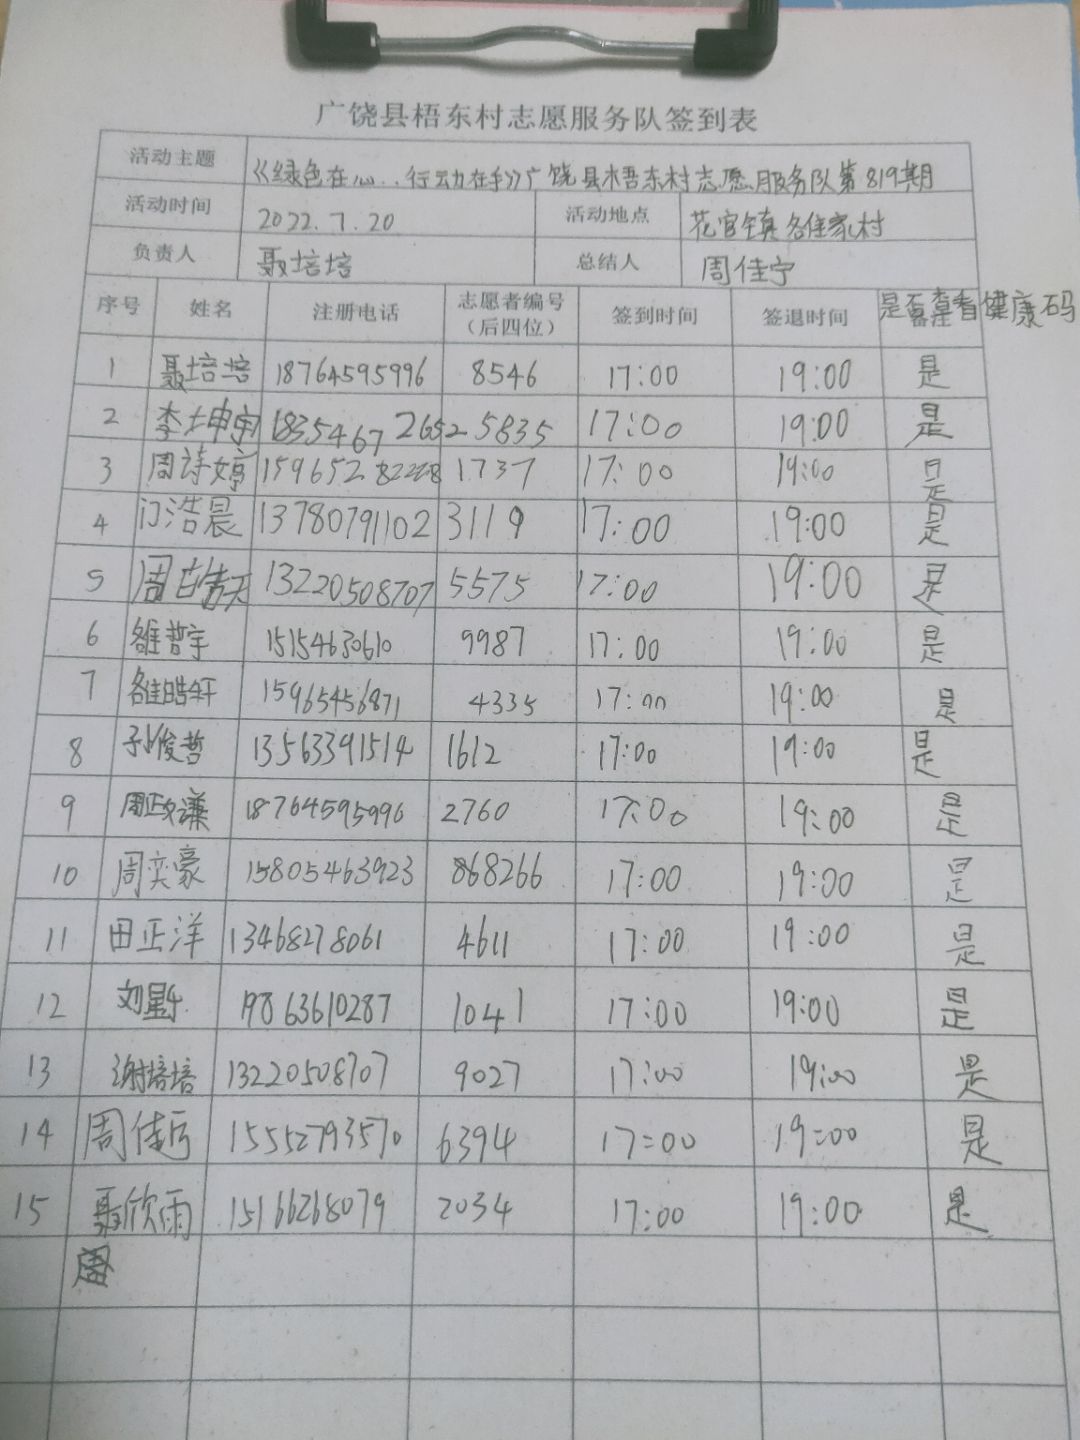 广饶县梧东村志愿服务队签到表
活动主题 《绿色在心..行动在手》广饶县梧东村志愿服务队第819期
活动时间 2022.7.20 活动地点 花官镇雒家村
负责人 聂培培 总结人 周佳宁
序号 姓名 注册电话 志愿者编号（后四位） 签到时间 签退时间 是否查看健康码
1 聂培培 18764595996 8546 17:00 19:00 是
2 李坤宇 18354672652 5835 17:00 19:00 是
3 周诗婷 1737 17:00 19:00 是
4 门浩晨 13780791102 3119 17:00 19:00 是
5 周 13220508707 5575 17:00 19:00 是
6 雒哲宇 15154630610 9987 17:00 19:00 是
7 雒皓轩 15965456871 4335 17:00 19:00 是
8 孙俊哲 13563391514 1612 17:00 19:00 是
9 周政谦 18764595996 2760 17:00 19:00 是
10 周奕豪 15805463923 868266 17:00 19:00 是
11 田正洋 13468278061 4611 17:00 19:00 是
12 刘星乐 19863610287 1041 17:00 19:00 是
13 谢培培 13220508707 9027 17:00 19:00 是
14 周佳 15552793570 6394 17=00 19=00 是
15 聂欣雨 15166268079 2034 17:00 19:00 是